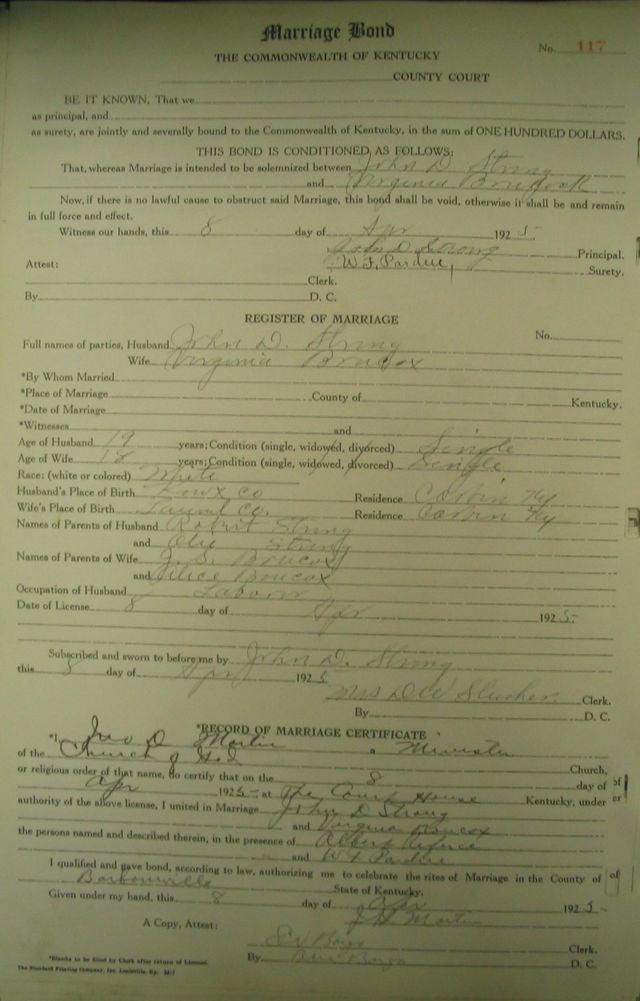 Marriage Bond
No. 117
THE COMMONWEALTH OF KENTUCKY
COUNTY COURT
BE IT KNOWN, That we
as principal, and
as surety, are jointly and severally bound to the Commonwealth of Kentucky, in the sum of ONE HUNDRED DOLLARS.
THIS BOND IS CONDITIONED AS FOLLOWS:
That, whereas Marriage is intended to be solemnized between John D Strong
and Virginia
Now, if there is no lawful cause to obstruct said Marriage, this bond shall be void, otherwise it shall be and remain
in full force and effect.
Witness our hands, this 8 day of Apr 1925
John D Strong Principal.
W. F. Pardue, Surety.
Attest:
Clerk.
By D. C.
REGISTER OF MARRIAGE
No.
Full names of parties, Husband John D. Strong
Wife Virginia Boucox
*By Whom Married
*Place of Marriage County of Kentucky.
*Date of Marriage
*Witnesses and
Age of Husband 19 years; Condition (single, widowed, divorced) Single
Age of Wife 18 years; Condition (single, widowed, divorced) Single
Race: (white or colored)
Husband's Place of Birth Knox Co Residence Corbin Ky
Wife's Place of Birth Laurel Co. Residence Corbin Ky
Names of Parents of Husband Robert Strong
and Strong
Names of Parents of Wife J. S. Boucox
and Alice Boucox
Occupation of Husband Laborer
Date of License 8 day of Apr 1925
Subscribed and sworn to before me by John D. Strong
this 8 day of Apr 1925
Mrs D W Slusher Clerk.
By D. C.
*RECORD OF MARRIAGE CERTIFICATE
*I, Jno D Martin a Minister
of the Church of God Church,
or religious order of that name, do certify that on the 8 day of
Apr 1925 at The Court House Kentucky, under
authority of the above license, I united in Marriage John D Strong
and Virginia Boucox
the persons named and described therein, in the presence of Albert
and W F Pardue
I qualified and gave bond, according to law, authorizing me to celebrate the rites of Marriage in the County of
Barbourville State of Kentucky.
Given under my hand, this 8 day of Apr 1925
Martin
A Copy, Attest:
Clerk.
By D. C.
*Blanks to be filled by Clerk after return of License.
The Standard Printing Company, Inc. Louisville, Ky.